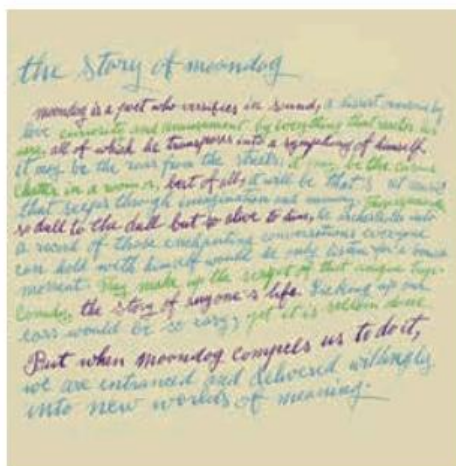 the story of moondog
moondog is a poet who versifies in sound, a diarist by
love curiosity and amusement by everything that reaches his
ears, all of which he transposes into a symphony of himself.
it may be the roar from the streets, it may be the
chatter in a room or, best of all, it will be that
that seeps through imagination and memory.
so dull to the dull but so alive to him, he orchestrates into
a record of those enchanting conversations everyone
can hold with himself would he only listen for a
moment. They make up the script of that unique
comedy, the story of anyone's life. Picking up our
ears would be so easy, yet it is seldom done
But when moondog compels us to do it,
we are entranced and delivered willingly
into new worlds of meaning.